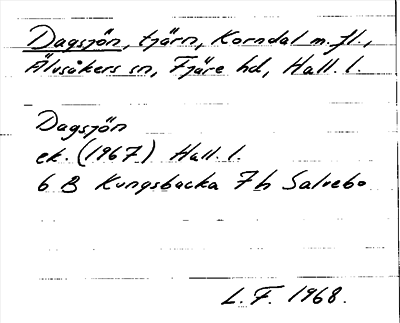 Dagsjön, tjärn, Korndal m.fl.,
Älvsåkers sn, Fjäre hd, Hall. l.
Dagsjön
ek. (1967) Hall. l.
6 B Kungsbacka 7 h Salvebo
L. F. 1968.